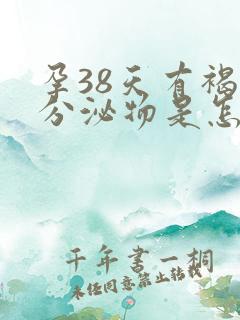 孕38天有褐
分泌物是怎
千年书一桐
未经同意禁止转载